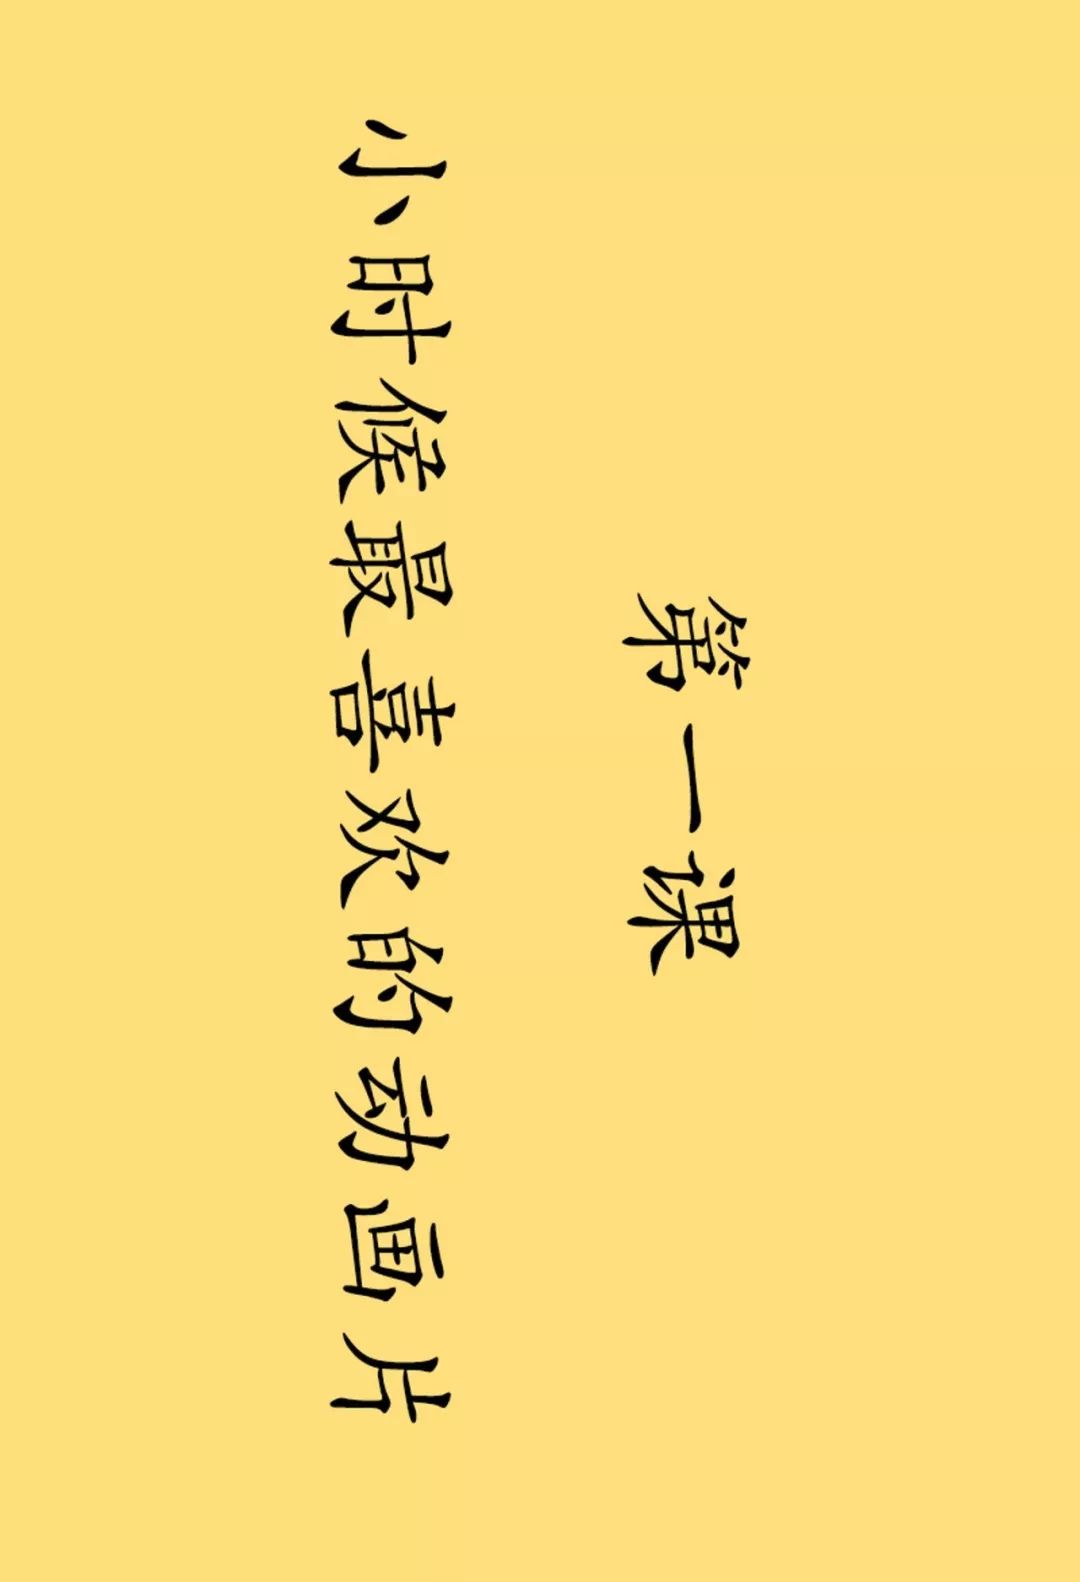 第一课
小时候最喜欢的动画片